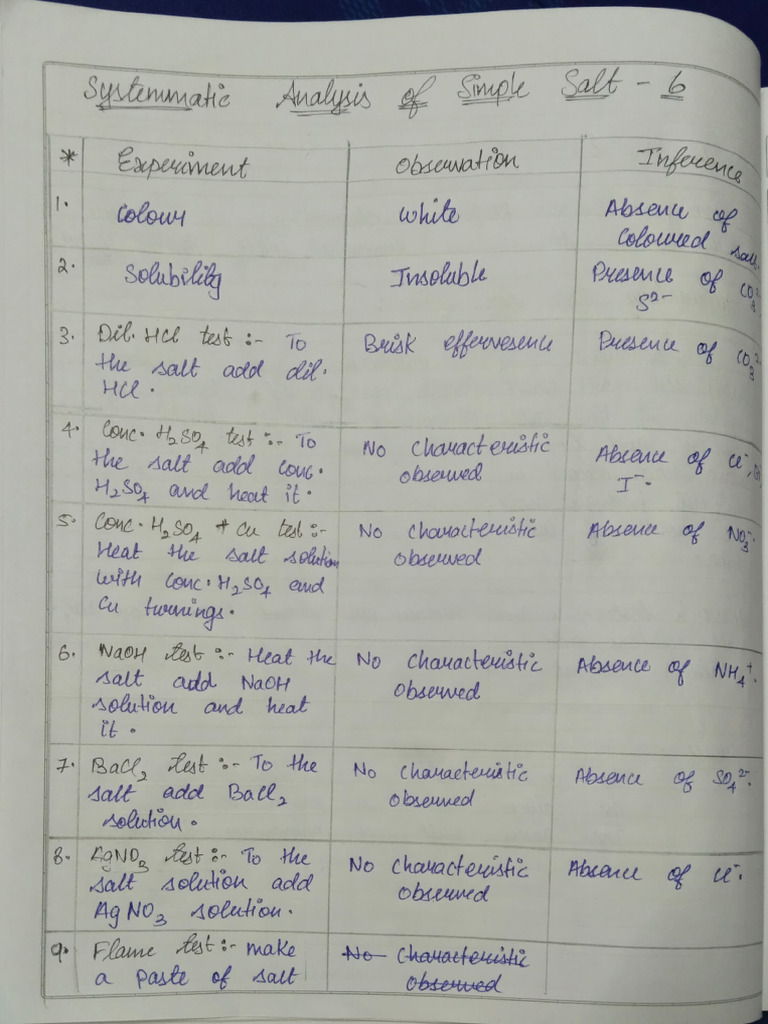 Systemmatic Analysis of Simple Salt - 6
* Experiment Observation Inference
1. Colour White Absence of
Coloured salt.
2. Solubility Insoluble Presence of CO3 2-
S2-
3. Dil. HCl test :- To Brisk effervesence Presence of CO3 2-
the salt add dil.
HCl.
4. Conc. H2SO4 test :- To No Characteristic Absence of Cl-,
the salt add conc. observed I-.
H2SO4 and heat it.
5. Conc. H2SO4 + Cu test :- No Characteristic Absence of NO3-.
Heat the salt solution observed
with conc. H2SO4 and
Cu turnings.
6. NaOH test :- Heat the No Characteristic Absence of NH4+.
salt add NaOH observed
solution and heat
it.
7. BaCl2 test :- To the No Characteristic Absence of SO4 2-.
salt add BaCl2 observed
solution.
8. AgNO3 test :- To the No Characteristic Absence of Cl-.
salt solution add observed
AgNO3 solution.
9. Flame test :- make No Characteristic
a paste of salt observed